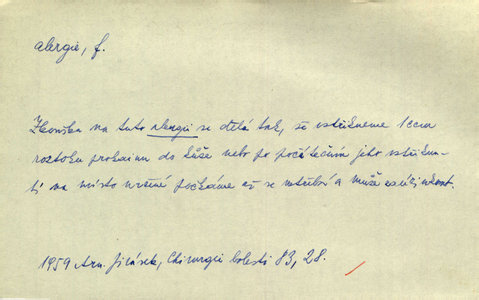 alergie, f.
Zkouška na tuto alergii se dělá tak, že vstříkneme 1 ccm
roztoku prokainu do kůže nebo po počátečním jeho vstříknu-
tí na místo určené počkáme až se vstřebí a může
1959 Arn. Jirásek, Chirurgie bolesti 83, 28.